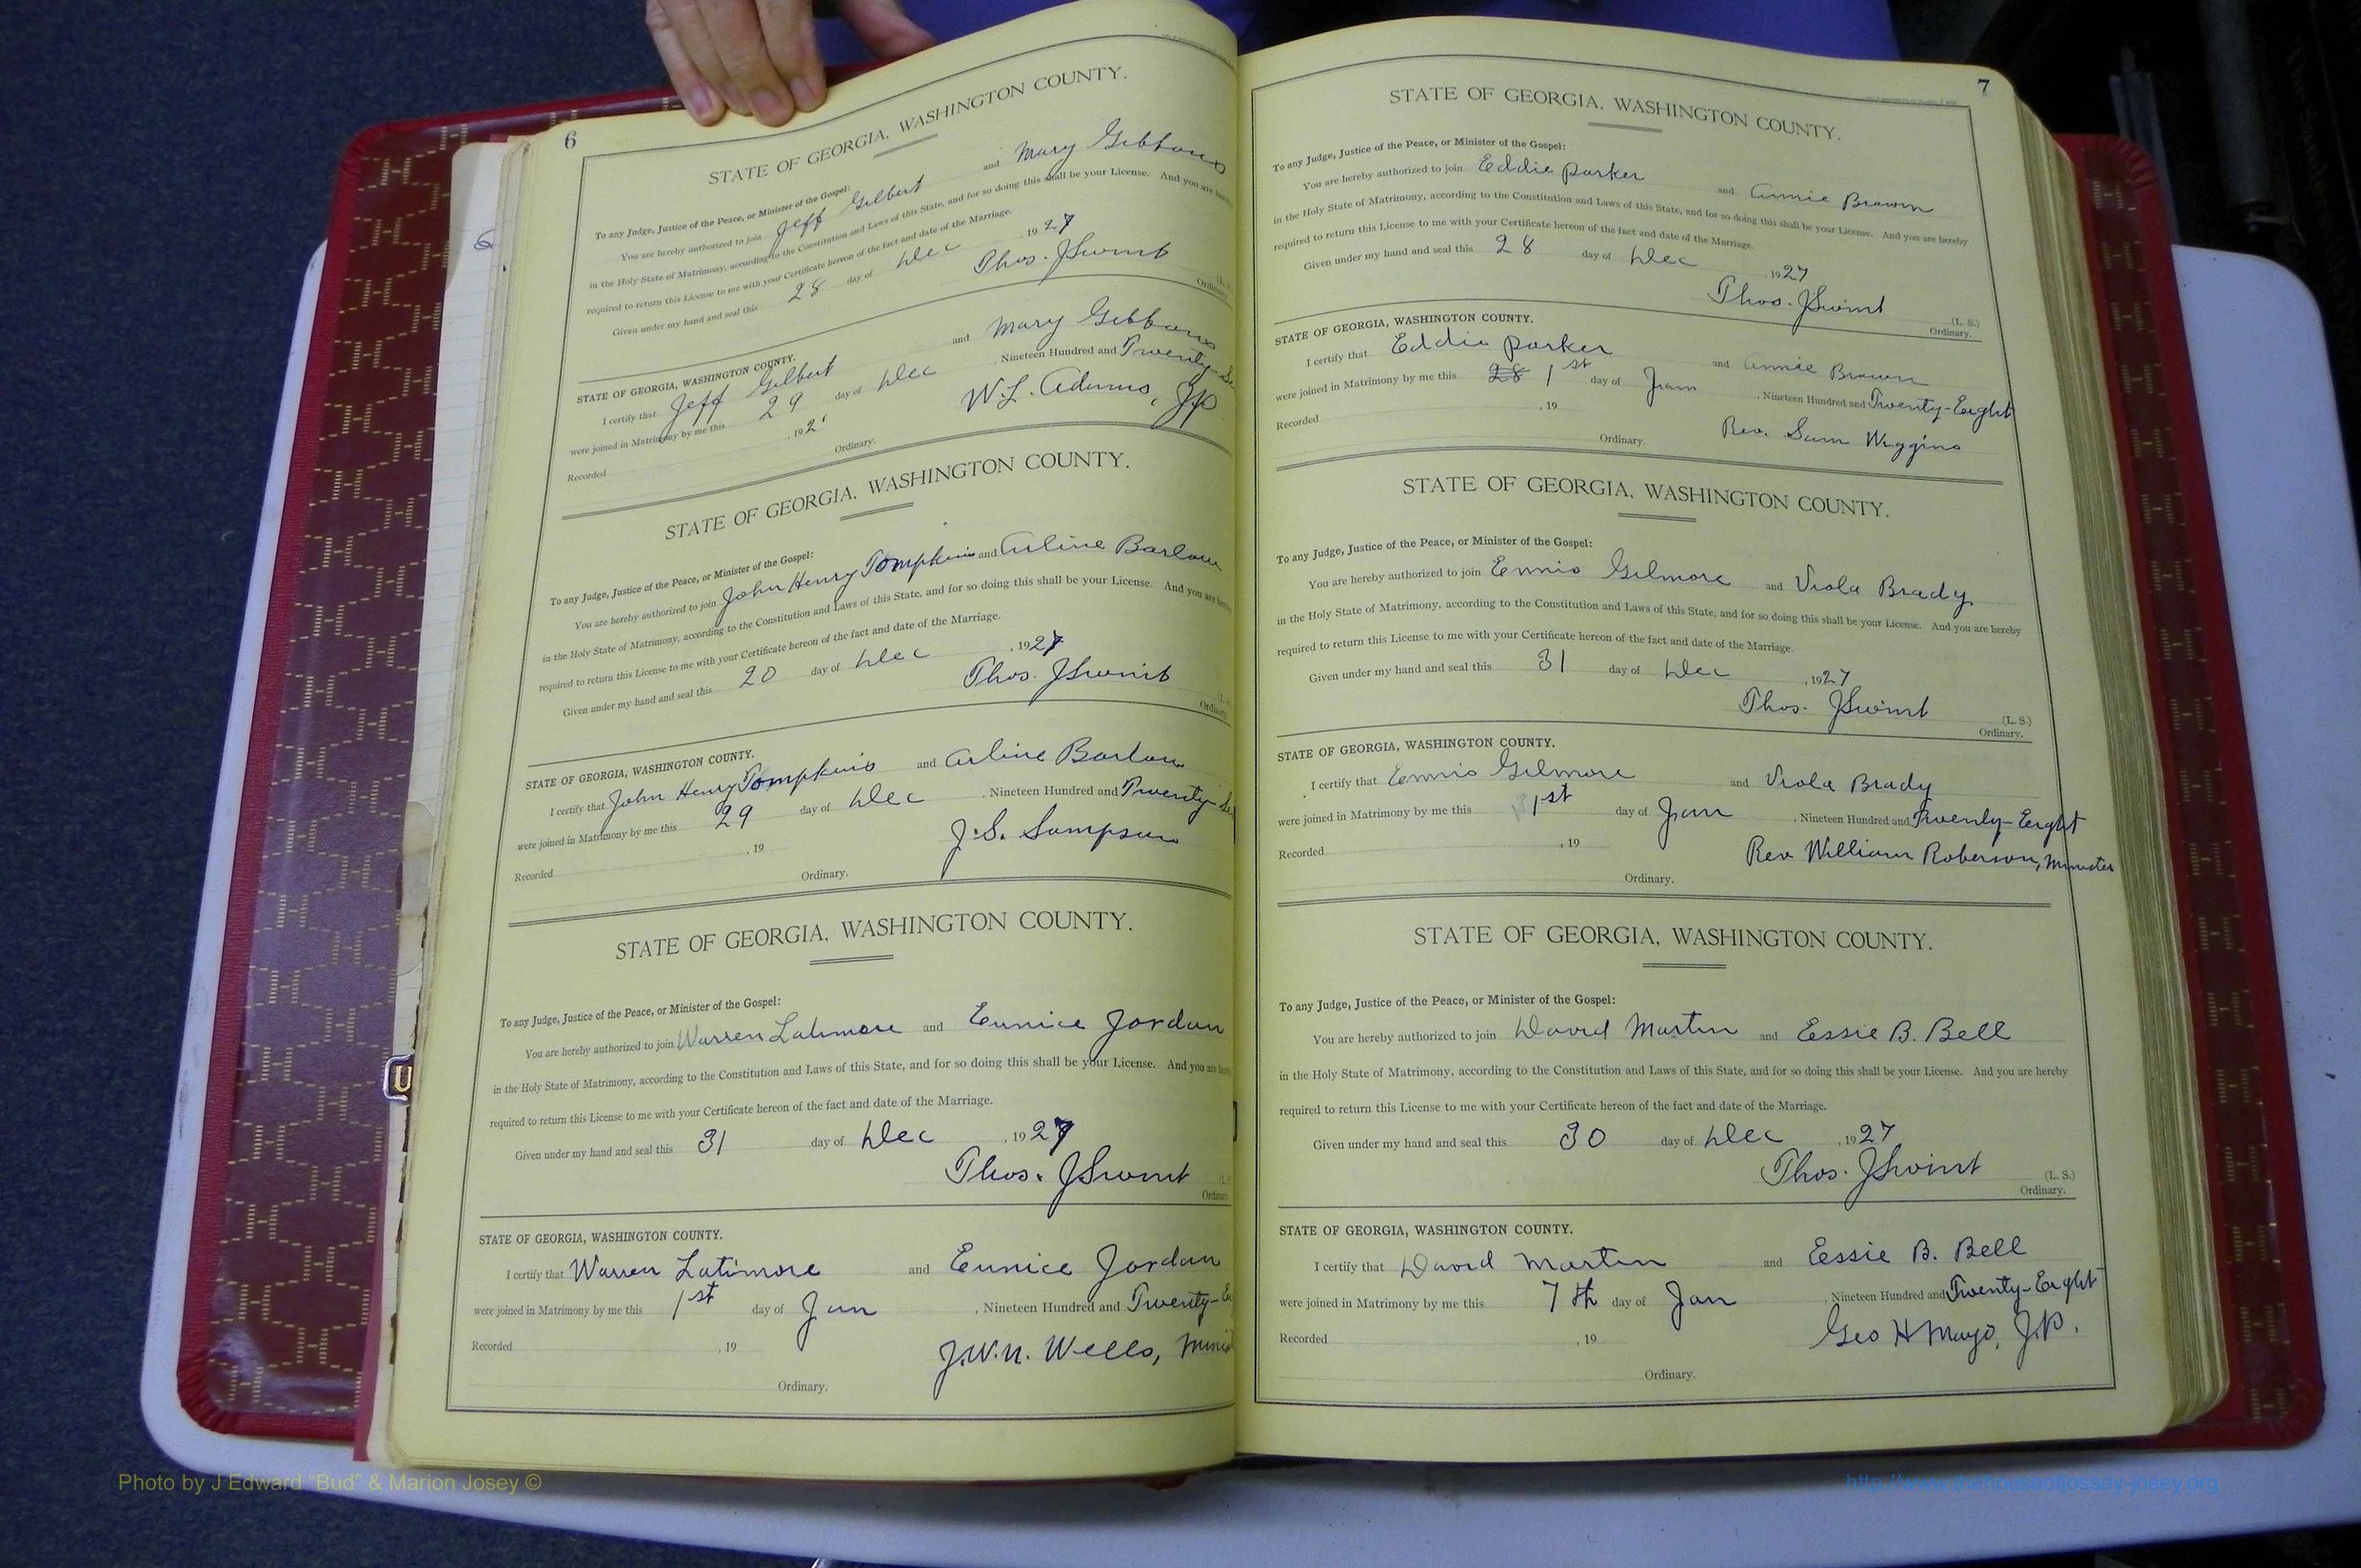 6
STATE OF GEORGIA, WASHINGTON COUNTY.
To any Judge, Justice of the Peace, or Minister of the Gospel:
You are hereby authorized to join Jeff Gilbert and Mary Gibbons
in the Holy State of Matrimony, according to the Constitution and Laws of this State, and for so doing this shall be your License. And you are
required to return this License to me with your Certificate hereon of the fact and date of the Marriage.
Given under my hand and seal this 28 day of Dec 1927
Thos. J Swint
(L.
Ordinary.
STATE OF GEORGIA, WASHINGTON COUNTY.
I certify that Jeff Gilbert and Mary Gibbons
were joined in Matrimony by me this 29 day of Dec , Nineteen Hundred and Twenty-Se
Recorded , 192
W. L. Adams, JP
Ordinary.
STATE OF GEORGIA, WASHINGTON COUNTY.
To any Judge, Justice of the Peace, or Minister of the Gospel:
You are hereby authorized to join John Henry Tompkins and Arline Barlow
in the Holy State of Matrimony, according to the Constitution and Laws of this State, and for so doing this shall be your License. And you are
required to return this License to me with your Certificate hereon of the fact and date of the Marriage.
Given under my hand and seal this 20 day of Dec , 1927
Thos. J Swint
(L.
Ordinary.
STATE OF GEORGIA, WASHINGTON COUNTY.
I certify that John Henry Tompkins and Arline Barlow
were joined in Matrimony by me this 29 day of Dec , Nineteen Hundred and Twenty-Se
Recorded , 19
J. S. Sampson
Ordinary.
STATE OF GEORGIA, WASHINGTON COUNTY.
To any Judge, Justice of the Peace, or Minister of the Gospel:
You are hereby authorized to join Warren Latimore and Eunice Jordan
in the Holy State of Matrimony, according to the Constitution and Laws of this State, and for so doing this shall be your License. And you are
required to return this License to me with your Certificate hereon of the fact and date of the Marriage.
Given under my hand and seal this 31 day of Dec , 1927
Thos. J Swint
(L. S
Ordinary
STATE OF GEORGIA, WASHINGTON COUNTY.
I certify that Warren Latimore and Eunice Jordan
were joined in Matrimony by me this 1st day of Jan , Nineteen Hundred and Twenty-Ei
Recorded , 19
J.W.N. Wells, Minis
Ordinary.
7
STATE OF GEORGIA, WASHINGTON COUNTY.
To any Judge, Justice of the Peace, or Minister of the Gospel:
You are hereby authorized to join Eddie Parker and Annie Brown
in the Holy State of Matrimony, according to the Constitution and Laws of this State, and for so doing this shall be your License. And you are hereby
required to return this License to me with your Certificate hereon of the fact and date of the Marriage.
Given under my hand and seal this 28 day of Dec , 1927
Thos. J Swint
(L. S.)
Ordinary.
STATE OF GEORGIA, WASHINGTON COUNTY.
I certify that Eddie Parker and Annie Brown
were joined in Matrimony by me this 28 1st day of Jan , Nineteen Hundred and Twenty-Eight
Recorded , 19
Rev. Sam Wiggins
Ordinary.
STATE OF GEORGIA, WASHINGTON COUNTY.
To any Judge, Justice of the Peace, or Minister of the Gospel:
You are hereby authorized to join Ennis Gilmore and Viola Brady
in the Holy State of Matrimony, according to the Constitution and Laws of this State, and for so doing this shall be your License. And you are hereby
required to return this License to me with your Certificate hereon of the fact and date of the Marriage.
Given under my hand and seal this 31 day of Dec , 1927
Thos. J Swint
(L. S.)
Ordinary.
STATE OF GEORGIA, WASHINGTON COUNTY.
I certify that Ennis Gilmore and Viola Brady
were joined in Matrimony by me this 1st day of Jan , Nineteen Hundred and Twenty-Eight
Recorded , 19
Rev William Roberson, Minister
Ordinary.
STATE OF GEORGIA, WASHINGTON COUNTY.
To any Judge, Justice of the Peace, or Minister of the Gospel:
You are hereby authorized to join David Martin and Essie B. Bell
in the Holy State of Matrimony, according to the Constitution and Laws of this State, and for so doing this shall be your License. And you are hereby
required to return this License to me with your Certificate hereon of the fact and date of the Marriage.
Given under my hand and seal this 30 day of Dec , 1927
Thos. J Swint
(L. S.)
Ordinary.
STATE OF GEORGIA, WASHINGTON COUNTY.
I certify that David Martin and Essie B. Bell
were joined in Matrimony by me this 7th day of Jan , Nineteen Hundred and Twenty-Eight
Recorded , 19
Geo H Mayo, J.P.
Ordinary.
Photo by J Edward “Bud” & Marion Josey ©
http://www.thehouseofjossey-josey.org